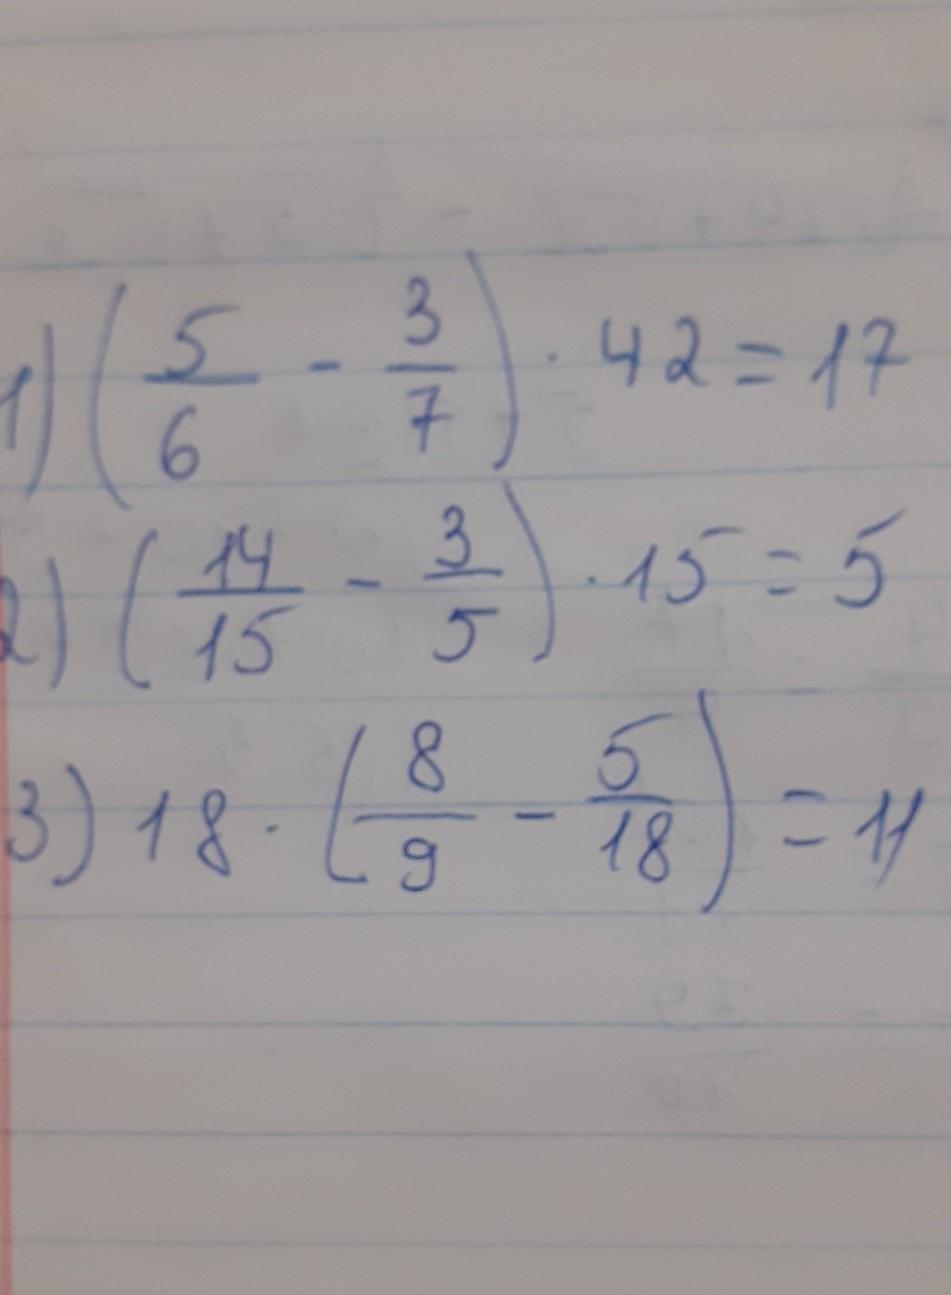 1) (5/6 - 3/7) · 42 = 17
2) (14/15 - 3/5) · 15 = 5
3) 18 · (8/9 - 5/18) = 11